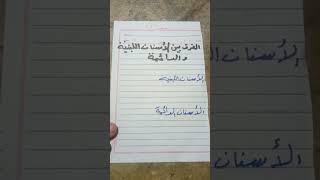 الفرق بين الأسنان اللبنية
والدائمة
الأسنان اللبنية
الأسنان الدائمة